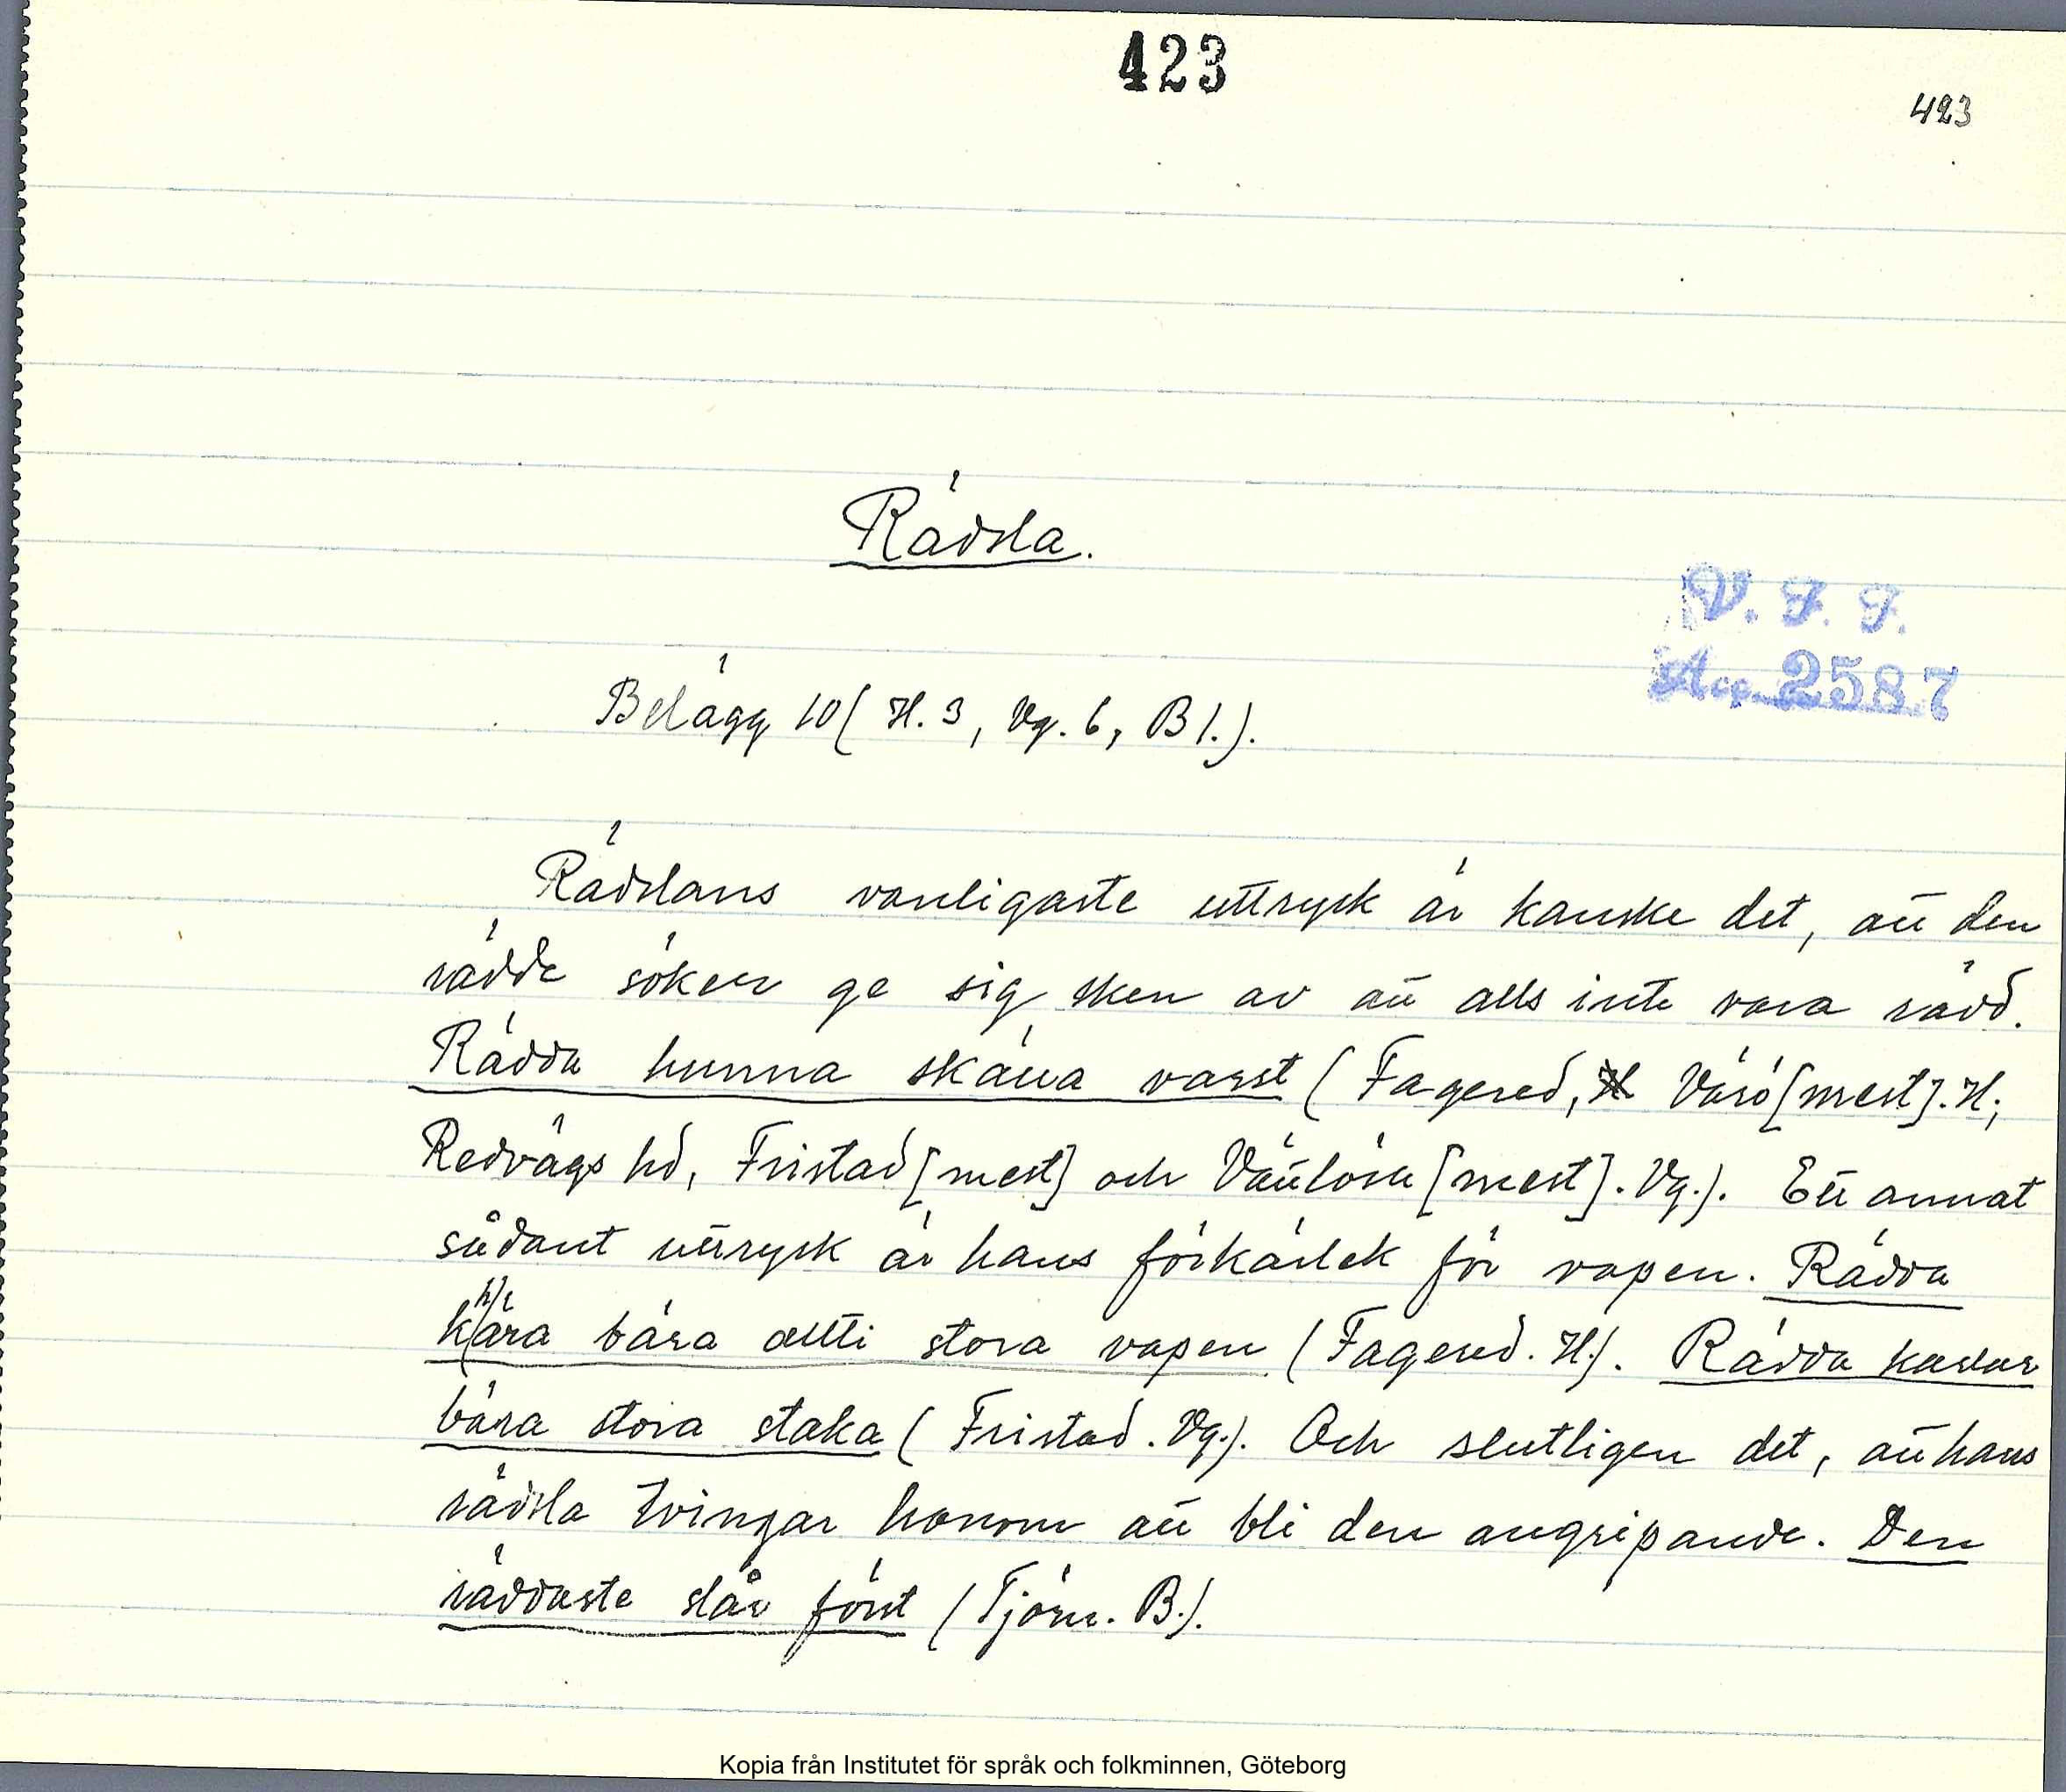 423
423
Rädsla.
V. F. F.
Acc. 2587
Belägg 10 (H. 3, Vg. 6, B 1.).
Rädslans vanligaste uttryck är kanske det, att den
rädde söker ge sig sken av att alls inte vara rädd.
Rädda hunna skälla varst (Fagered, Värö [mest]. H;
Redvägs hd, Fristad [mest] och Vättlösa [mest]. Vg.). Ett annat
sådant uttryck är hans förkärlek för vapen. Rädda
kära bära allti stora vapen (Fagered. H.). Rädda karlar
bära stora staka (Fristad. Vg.). Och slutligen det, att hans
rädsla tvingar honom att bli den angripande. Den
räddaste slår först (Tjörn. B.).
Kopia från Institutet för språk och folkminnen, Göteborg